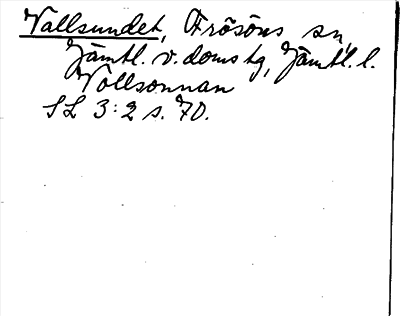 Vallsundet, Frösöns sn,
Jämtl. v. doms tg, Jämtl. l.
Vollsonnan
SL 3:2 s. 70.